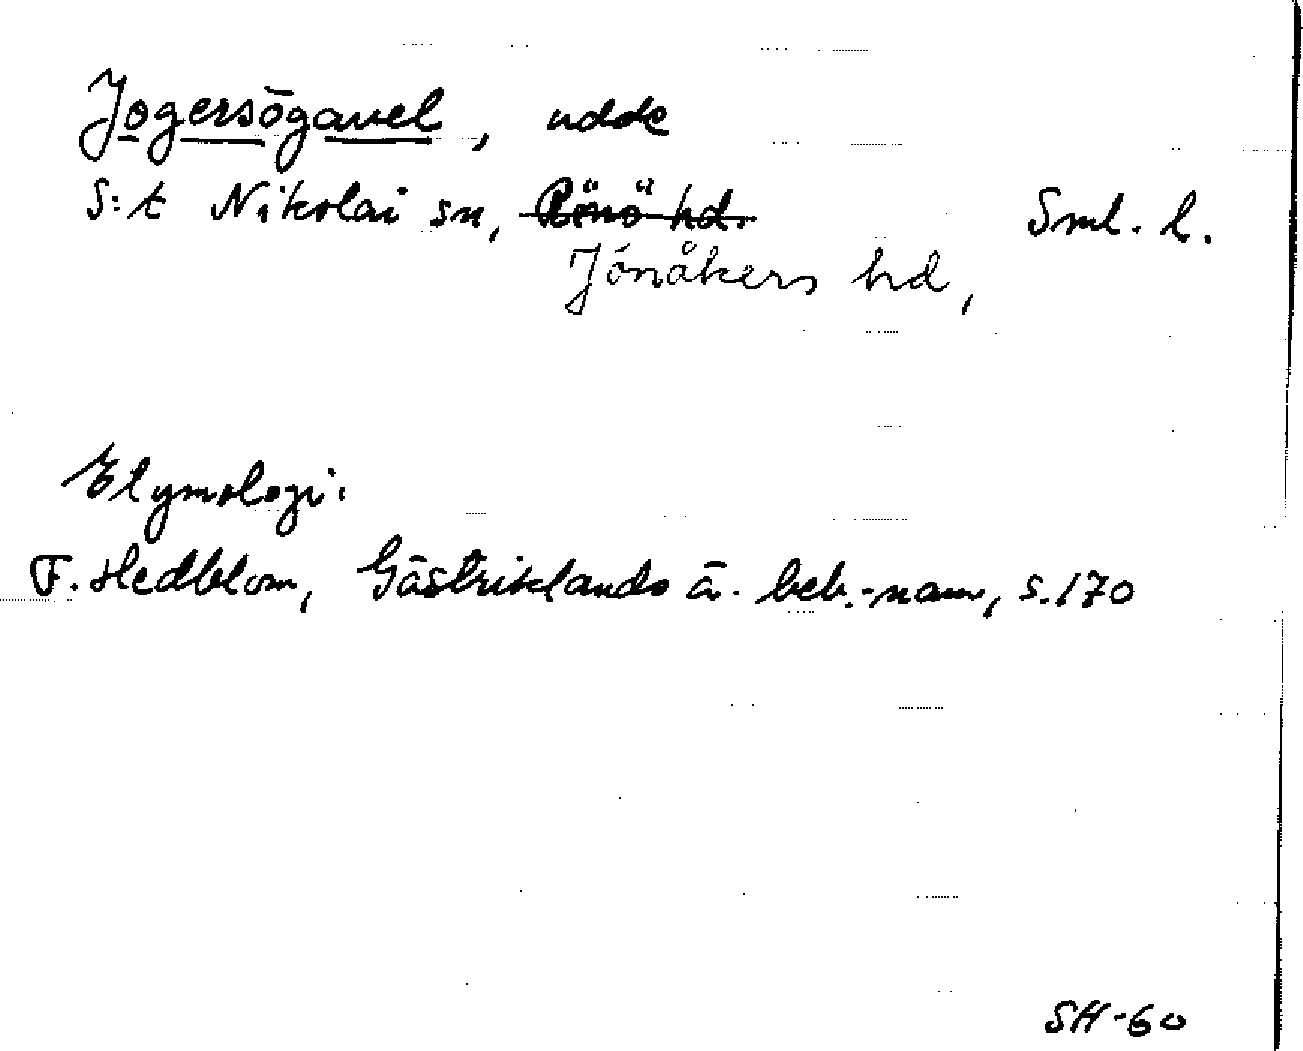 Jogersögavel, udde
S:t Nikolai sn, Rönö hd. Sml. l.
Jönåkers hd,
Etymologi:
F. Hedblom, Gästriklands ä. beb.-namn, s. 170
SH-60